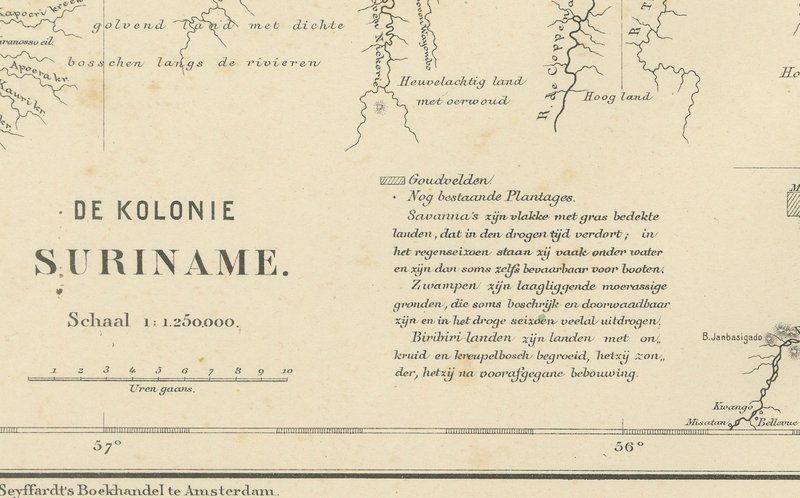 Kapoeri kreek
golvend land met dichte
bosschen langs de rivieren
Apoera kr.
Kauri kr.
Heuvelachtig land
met oerwoud
R. de Coppena
Hoog land
R.
Goudvelden
Nog bestaande Plantages.
Savanna's zijn vlakke met gras bedekte
landen, dat in den drogen tijd verdort; in
het regenseizoen staan zij vaak onder water
en zijn dan soms zelfs bevaarbaar voor booten.
Zwampen zijn laagliggende moerassige
gronden, die soms boschrijk en doorwaadbaar
zijn en in het droge seizoen veelal uitdrogen.
Biribiri-landen zijn landen met on„
kruid en kreupelbosch begroeid, hetzij zon„
der, hetzij na voorafgegane bebouwing.
DE KOLONIE
SURINAME.
Schaal 1:1.250.000.
1 2 3 4 5 6 7 8 9 10
Uren gaans.
B. Janbasigado
Kwango
Misatan
Bellevue
57° 56°
Seyffardt's Boekhandel te Amsterdam.